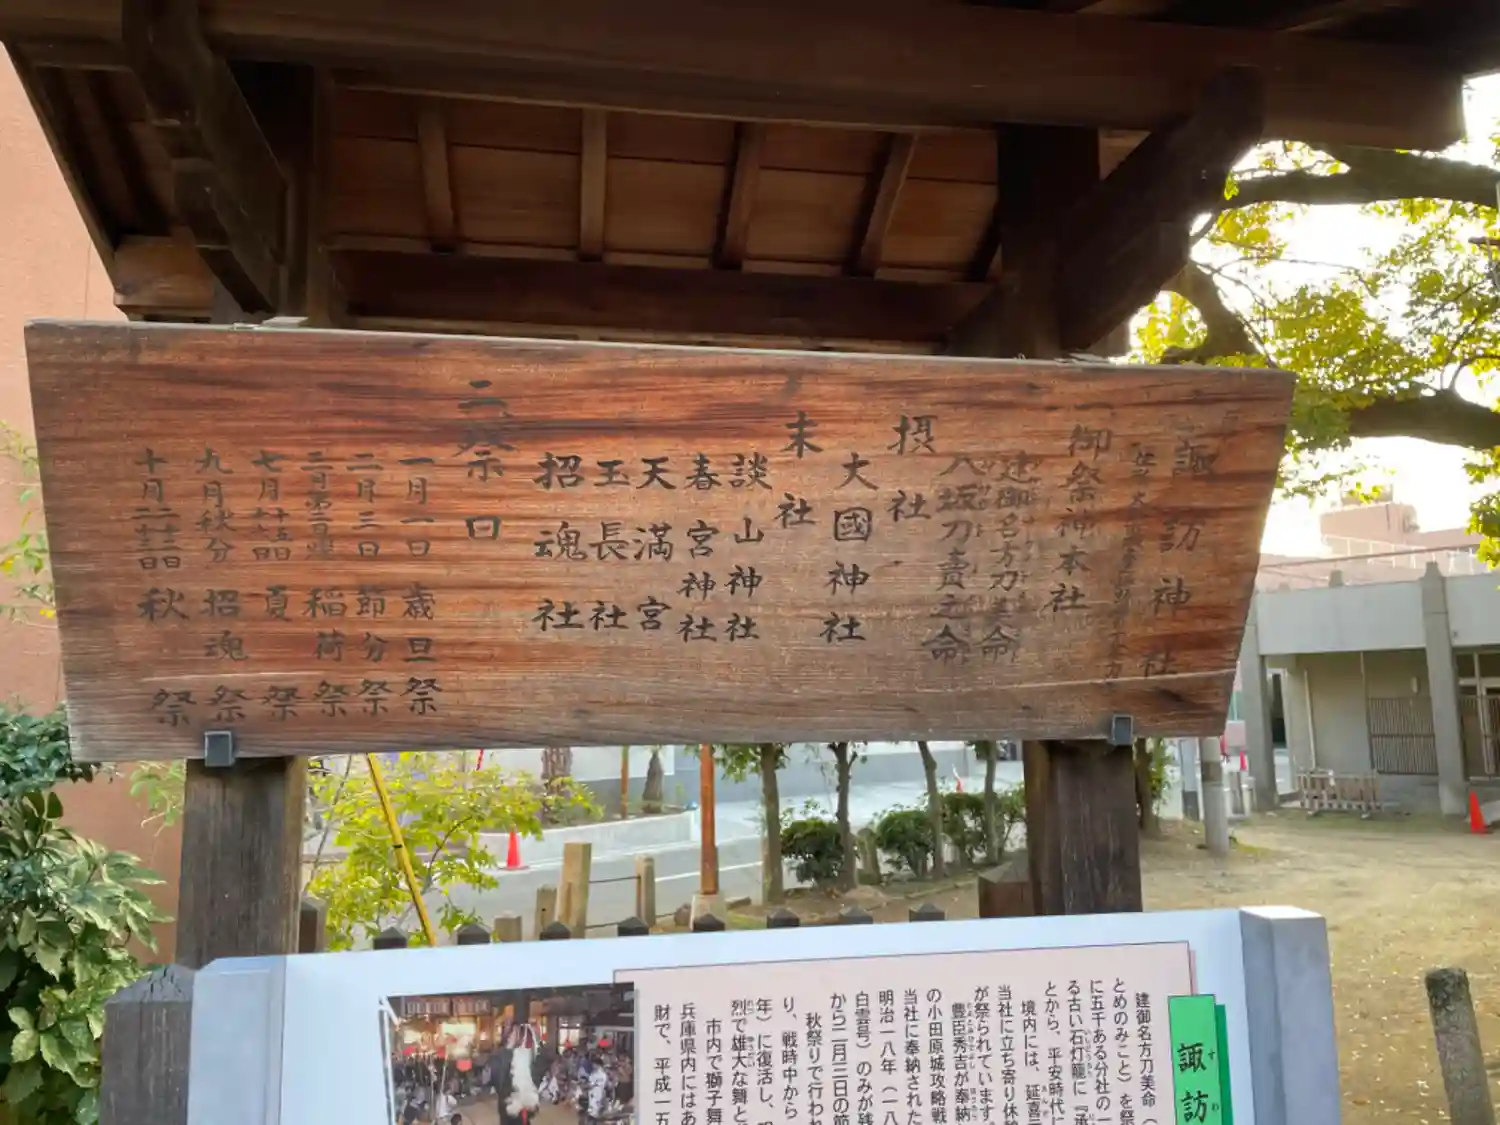 諏訪神社
御祭神本社
建御名方刀美命
八坂刀賣之命
摂社
大國神社
末社
談山神社
春宮神社
天満宮
玉長社
招魂社
二、祭日
一月一日 歳旦祭
二月三日 節分祭
二月第二日曜 稲荷祭
七月 夏祭
九月秋分 招魂祭
十月 秋祭
諏訪
建御名方刀美命（
とめのみこと）を祭
に五千ある分社の一
る古い石灯籠に『承
とから、平安時代に
境内には、延喜元
当社に立ち寄り休
が祭られています。
豊臣秀吉が奉納
の小田原城攻略戦
当社に奉納された
明治一八年（一八
白雲号）のみが残
から二月三日の節
秋祭りで行われ
り、戦時中から
年）に復活し、
烈で雄大な舞と
市内で獅子舞
兵庫県内にはあ
財で、平成一五